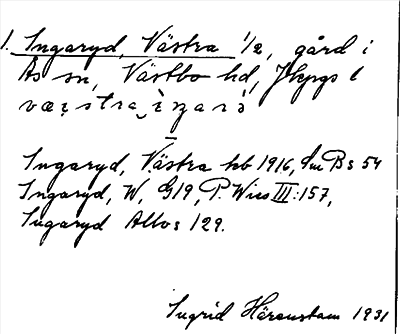 1. Ingaryd, Västra 1/2, gård i
Ås sn, Västbo hd, Jkpgs l
Ingaryd, Västra kb 1916, Sm Bs 54
Ingaryd, W, G19, P. Wies III:157,
Ingaryd Allvos 129.
Ingrid Härenstam 1931